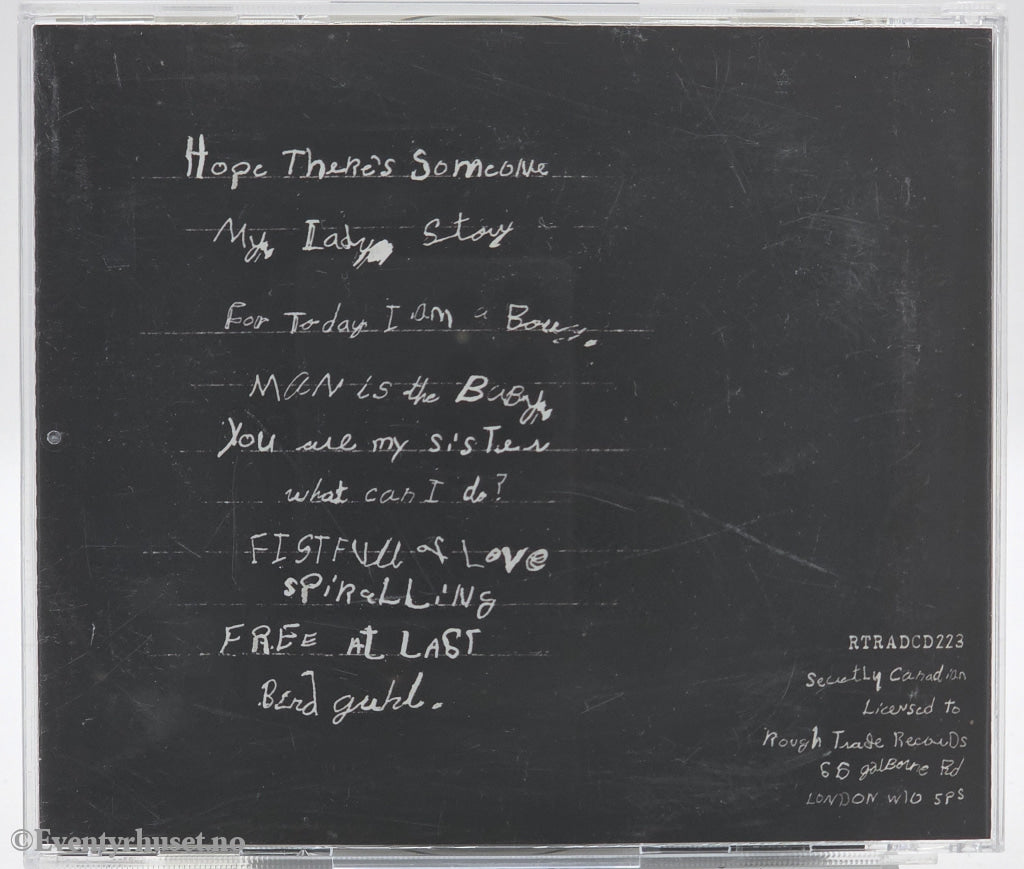 Hope There's Someone
My Lady Story
For Today I am a Boy.
MAN is the Baby
You are my sister
what can I do?
FISTFULL of Love
SPiRaLLiNg
FREE At LAST
Bird guhl.
RTRADCD223
Secretly Canadian
Licensed to
Rough Trade Records
66 golborne Rd
LONDON W10 5PS
©Eventyrhuset.no